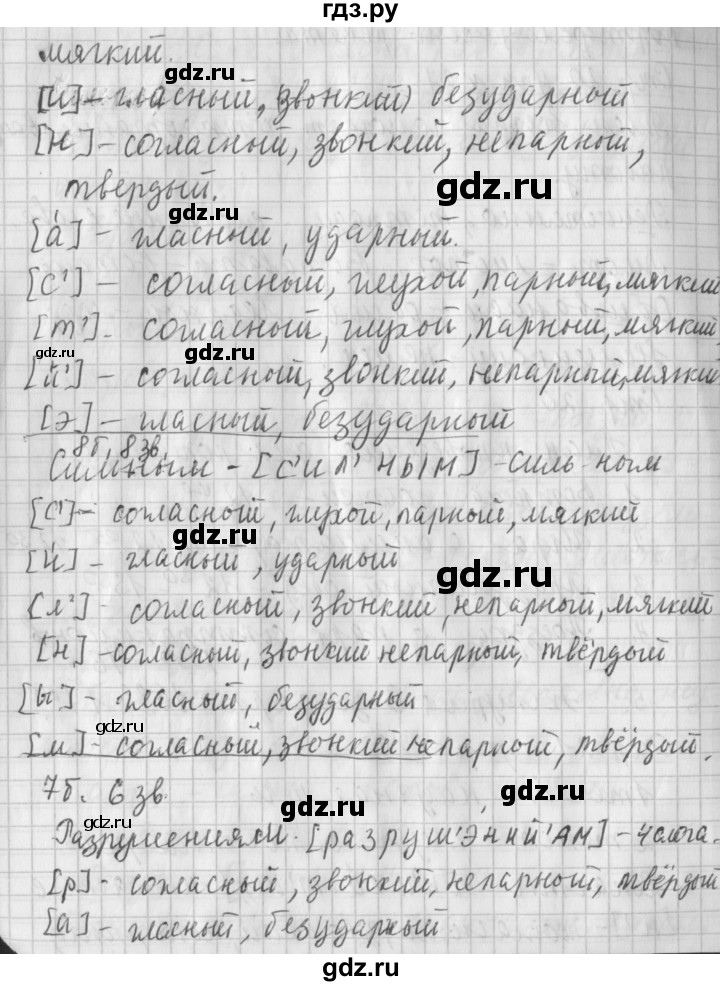 гдз.ру
мягкий.
gdz.ru
[и] - гласный, (звонкий) безударный
[н] - согласный, звонкий, непарный,
твердый.
gdz.ru
gdz.ru
[а́] - гласный, ударный.
[с'] - согласный, глухой, парный, мягкий
[т'] - согласный, глухой, парный, мягкий
gdz.ru
gdz.ru
[й'] - согласный, звонкий, непарный, мягкий
[э] - гласный, безударный
8 б, 8 зв.
Сильным - [С'ИЛ'НЫМ] - силь-ным
gdz.ru
[с'] - согласный, глухой, парный, мягкий
gdz.ru
[и́] - гласный, ударный
gdz.ru
[л'] - согласный, звонкий, непарный, мягкий
gdz.ru
[н] - согласный, звонкий непарный, твёрдый
[ы] - гласный, безударный
gdz.ru
[м] - согласный, звонкий непарный, твёрдый.
7 б. 6 зв.
gdz.ru
gdz.ru
Разрушениями. [РАЗРУШ'ЭНИЙ'АМ] - 4 слога.
[р] - согласный, звонкий, непарный, твёрдый
gdz.ru
[а] - гласный, безударный
gdz.ru
gdz.ru